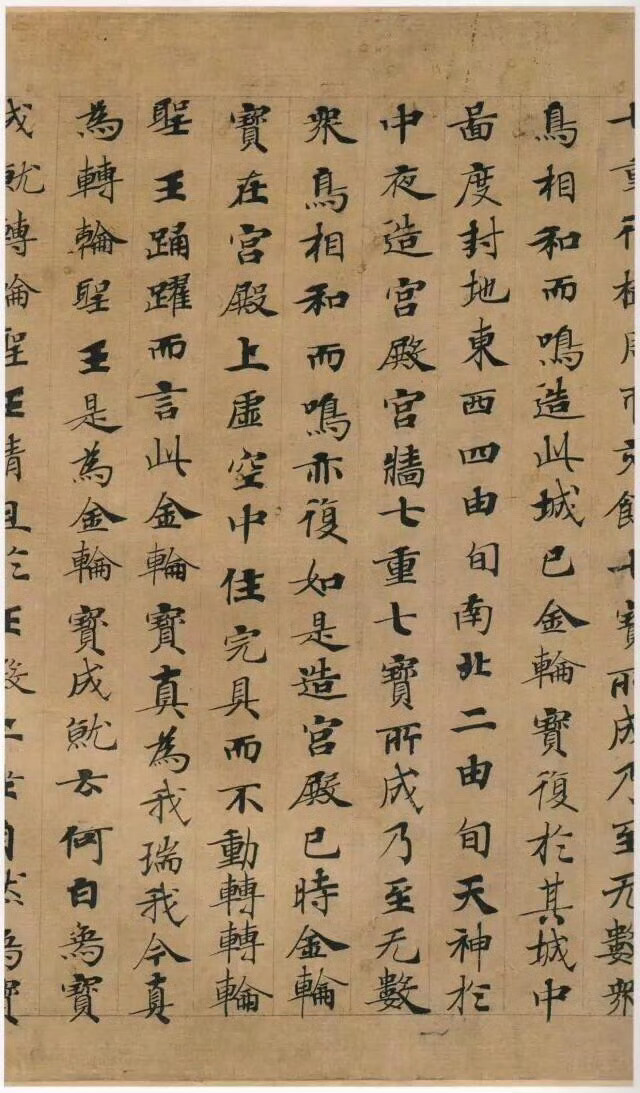 七重行樹周帀交餝七寶所成乃至无數眾
鳥相和而鳴造此城已金輪寶復於其城中
啚度封地東西四由旬南北二由旬天神於
中夜造宮殿宮牆七重七寶所成乃至无數
眾鳥相和而鳴亦復如是造宮殿已時金輪
寶在宮殿上虛空中住完具而不動轉轉輪
聖王踊躍而言此金輪寶真為我瑞我今真
為轉輪聖王是為金輪寶成就云何白象寶
成就轉輪聖王清旦於正殿上坐自然象寶